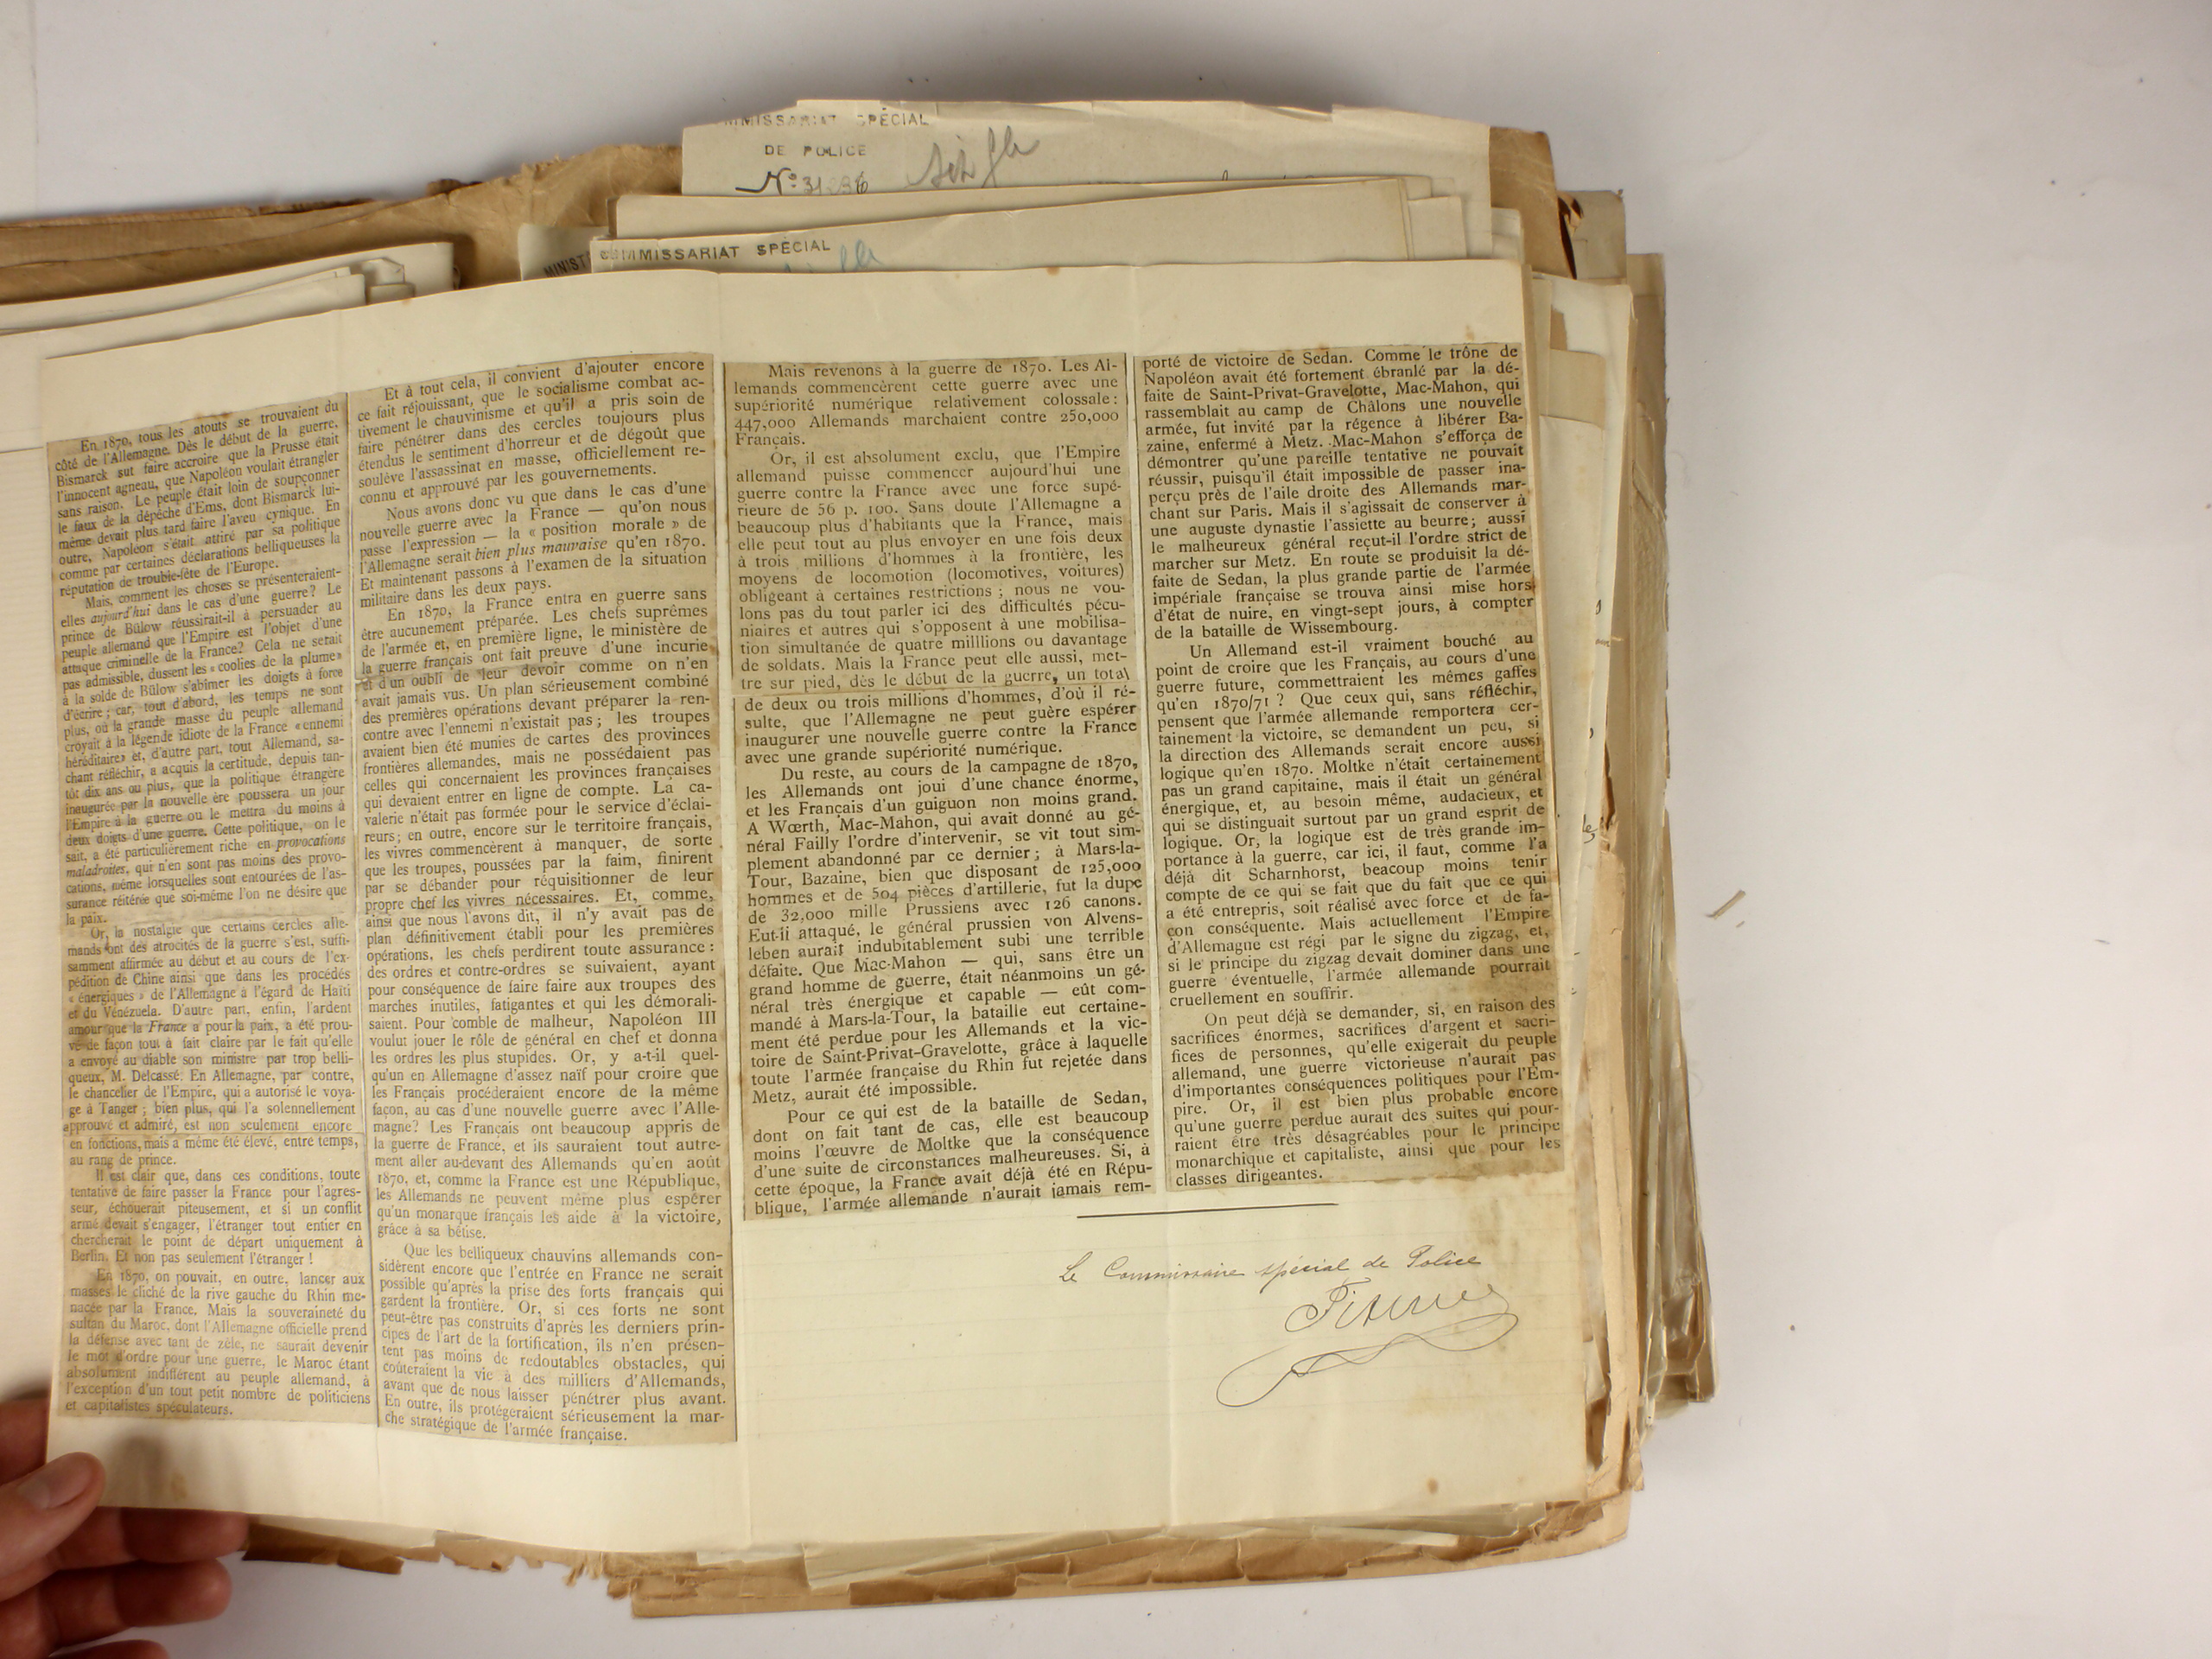 MMISSARIAT SPÉCIAL
DE POLICE
COMMISSARIAT SPÉCIAL
MINIST
En 1870, tous les atouts se trouvaient du
côté de l'Allemagne. Dès le début de la guerre,
Bismarck sut faire accroire que la Prusse était
l'innocent agneau, que Napoléon voulait étrangler
sans raison. Le peuple était loin de soupçonner
le faux de la dépêche d'Ems, dont Bismarck lui-
même devait plus tard faire l'aveu cynique. En
outre, Napoléon s'était attiré par sa politique
comme par certaines déclarations belliqueuses la
réputation de trouble-fête de l'Europe.
Mais, comment les choses se présenteraient-
elles aujourd'hui dans le cas d'une guerre? Le
prince de Bülow réussirait-il à persuader au
peuple allemand que l'Empire est l'objet d'une
attaque criminelle de la France? Cela ne serait
pas admissible, dussent les « coolies de la plume»
à la solde de Bülow s'abîmer les doigts à force
d'écrire; car, tout d'abord, les temps ne sont
plus, où la grande masse du peuple allemand
croyait à la légende idiote de la France « ennemi
héréditaire» et, d'autre part, tout Allemand, sa-
chant réfléchir, a acquis la certitude, depuis tan-
tôt dix ans ou plus, que la politique étrangère
inaugurée par la nouvelle ère poussera un jour
l'Empire à la guerre ou le mettra du moins à
deux doigts d'une guerre. Cette politique, on le
sait, a été particulièrement riche en provocations
maladroites, qui n'en sont pas moins des provo-
cations, même lorsquelles sont entourées de l'as-
surance réitérée que soi-même l'on ne désire que
la paix.
Or, la nostalgie que certains cercles alle-
mands ont des atrocités de la guerre s'est, suffi-
samment affirmée au début et au cours de l'ex-
pédition de Chine ainsi que dans les procédés
« énergiques » de l'Allemagne à l'égard de Haïti
et du Vénézuela. D'autre part, enfin, l'ardent
amour que la France a pour la paix, a été prou-
vé de façon tout à fait claire par le fait qu'elle
a envoyé au diable son ministre par trop belli-
queux, M. Delcassé. En Allemagne, par contre,
le chancelier de l'Empire, qui a autorisé le voya-
ge à Tanger; bien plus, qui l'a solennellement
approuvé et admiré, est non seulement encore
en fonctions, mais a même été élevé, entre temps,
au rang de prince.
Il est clair que, dans ces conditions, toute
tentative de faire passer la France pour l'agres-
seur, échouerait piteusement, et si un conflit
armé devait s'engager, l'étranger tout entier en
chercherait le point de départ uniquement à
Berlin. Et non pas seulement l'étranger!
En 1870, on pouvait, en outre, lancer aux
masses le cliché de la rive gauche du Rhin me-
nacée par la France. Mais la souveraineté du
sultan du Maroc, dont l'Allemagne officielle prend
la défense avec tant de zèle, ne saurait devenir
le mot d'ordre pour une guerre, le Maroc étant
absolument indifférent au peuple allemand, à
l'exception d'un tout petit nombre de politiciens
et capitalistes spéculateurs.
Et à tout cela, il convient d'ajouter encore
ce fait réjouissant, que le socialisme combat ac-
tivement le chauvinisme et qu'il a pris soin de
faire pénétrer dans des cercles toujours plus
étendus le sentiment d'horreur et de dégoût que
soulève l'assassinat en masse, officiellement re-
connu et approuvé par les gouvernements.
Nous avons donc vu que dans le cas d'une
nouvelle guerre avec la France — qu'on nous
passe l'expression — la « position morale » de
l'Allemagne serait bien plus mauvaise qu'en 1870.
Et maintenant passons à l'examen de la situation
militaire dans les deux pays.
En 1870, la France entra en guerre sans
être aucunement préparée. Les chefs suprêmes
de l'armée et, en première ligne, le ministère de
la guerre français ont fait preuve d'une incurie
et d'un oubli de leur devoir comme on n'en
avait jamais vus. Un plan sérieusement combiné
des premières opérations devant préparer la ren-
contre avec l'ennemi n'existait pas; les troupes
avaient bien été munies de cartes des provinces
frontières allemandes, mais ne possédaient pas
celles qui concernaient les provinces françaises
qui devaient entrer en ligne de compte. La ca-
valerie n'était pas formée pour le service d'éclai-
reurs; en outre, encore sur le territoire français,
les vivres commencèrent à manquer, de sorte
que les troupes, poussées par la faim, finirent
par se débander pour réquisitionner de leur
propre chef les vivres nécessaires. Et, comme,
ainsi que nous l'avons dit, il n'y avait pas de
plan définitivement établi pour les premières
opérations, les chefs perdirent toute assurance:
des ordres et contre-ordres se suivaient, ayant
pour conséquence de faire faire aux troupes des
marches inutiles, fatigantes et qui les démorali-
saient. Pour comble de malheur, Napoléon III
voulut jouer le rôle de général en chef et donna
les ordres les plus stupides. Or, y a-t-il quel-
qu'un en Allemagne d'assez naïf pour croire que
les Français procéderaient encore de la même
façon, au cas d'une nouvelle guerre avec l'Alle-
magne? Les Français ont beaucoup appris de
la guerre de France, et ils sauraient tout autre-
ment aller au-devant des Allemands qu'en août
1870, et, comme la France est une République,
les Allemands ne peuvent même plus espérer
qu'un monarque français les aide à la victoire,
grâce à sa bêtise.
Que les belliqueux chauvins allemands con-
sidèrent encore que l'entrée en France ne serait
possible qu'après la prise des forts français qui
gardent la frontière. Or, si ces forts ne sont
peut-être pas construits d'après les derniers prin-
cipes de l'art de la fortification, ils n'en présen-
tent pas moins de redoutables obstacles, qui
coûteraient la vie à des milliers d'Allemands,
avant que de nous laisser pénétrer plus avant.
En outre, ils protégeraient sérieusement la mar-
che stratégique de l'armée française.
Mais revenons à la guerre de 1870. Les Al-
lemands commencèrent cette guerre avec une
supériorité numérique relativement colossale:
447,000 Allemands marchaient contre 250,000
Français.
Or, il est absolument exclu, que l'Empire
allemand puisse commencer aujourd'hui une
guerre contre la France avec une force supé-
rieure de 56 p. 100. Sans doute l'Allemagne a
beaucoup plus d'habitants que la France, mais
elle peut tout au plus envoyer en une fois deux
à trois millions d'hommes à la frontière, les
moyens de locomotion (locomotives, voitures)
obligeant à certaines restrictions; nous ne vou-
lons pas du tout parler ici des difficultés pécu-
niaires et autres qui s'opposent à une mobilisa-
tion simultanée de quatre milllions ou davantage
de soldats. Mais la France peut elle aussi, met-
tre sur pied, dès le début de la guerre, un total
de deux ou trois millions d'hommes, d'où il ré-
sulte, que l'Allemagne ne peut guère espérer
inaugurer une nouvelle guerre contre la France
avec une grande supériorité numérique.
Du reste, au cours de la campagne de 1870,
les Allemands ont joui d'une chance énorme,
et les Français d'un guiguon non moins grand.
A Wœrth, Mac-Mahon, qui avait donné au gé-
néral Failly l'ordre d'intervenir, se vit tout sim-
plement abandonné par ce dernier; à Mars-la-
Tour, Bazaine, bien que disposant de 125,000
hommes et de 504 pièces d'artillerie, fut la dupe
de 32,000 mille Prussiens avec 126 canons.
Eut-il attaqué, le général prussien von Alvens-
leben aurait indubitablement subi une terrible
défaite. Que Mac-Mahon — qui, sans être un
grand homme de guerre, était néanmoins un gé-
néral très énergique et capable — eût com-
mandé à Mars-la-Tour, la bataille eut certaine-
ment été perdue pour les Allemands et la vic-
toire de Saint-Privat-Gravelotte, grâce à laquelle
toute l'armée française du Rhin fut rejetée dans
Metz, aurait été impossible.
Pour ce qui est de la bataille de Sedan,
dont on fait tant de cas, elle est beaucoup
moins l'œuvre de Moltke que la conséquence
d'une suite de circonstances malheureuses. Si, à
cette époque, la France avait déjà été en Répu-
blique, l'armée allemande n'aurait jamais rem-
porté de victoire de Sedan. Comme le trône de
Napoléon avait été fortement ébranlé par la dé-
faite de Saint-Privat-Gravelotte, Mac-Mahon, qui
rassemblait au camp de Châlons une nouvelle
armée, fut invité par la régence à libérer Ba-
zaine, enfermé à Metz. Mac-Mahon s'efforça de
démontrer qu'une pareille tentative ne pouvait
réussir, puisqu'il était impossible de passer ina-
perçu près de l'aile droite des Allemands mar-
chant sur Paris. Mais il s'agissait de conserver à
une auguste dynastie l'assiette au beurre; aussi
le malheureux général reçut-il l'ordre strict de
marcher sur Metz. En route se produisit la dé-
faite de Sedan, la plus grande partie de l'armée
impériale française se trouva ainsi mise hors
d'état de nuire, en vingt-sept jours, à compter
de la bataille de Wissembourg.
Un Allemand est-il vraiment bouché au
point de croire que les Français, au cours d'une
guerre future, commettraient les mêmes gaffes
qu'en 1870/71? Que ceux qui, sans réfléchir,
pensent que l'armée allemande remportera cer-
tainement la victoire, se demandent un peu, si
la direction des Allemands serait encore aussi
logique qu'en 1870. Moltke n'était certainement
pas un grand capitaine, mais il était un général
énergique, et, au besoin même, audacieux, et
qui se distinguait surtout par un grand esprit de
logique. Or, la logique est de très grande im-
portance à la guerre, car ici, il faut, comme l'a
déjà dit Scharnhorst, beacoup moins tenir
compte de ce qui se fait que du fait que ce qui
a été entrepris, soit réalisé avec force et de fa-
çon conséquente. Mais actuellement l'Empire
d'Allemagne est régi par le signe du zigzag, et,
si le principe du zigzag devait dominer dans une
guerre éventuelle, l'armée allemande pourrait
cruellement en souffrir.
On peut déjà se demander, si, en raison des
sacrifices énormes, sacrifices d'argent et sacri-
fices de personnes, qu'elle exigerait du peuple
allemand, une guerre victorieuse n'aurait pas
d'importantes conséquences politiques pour l'Em-
pire. Or, il est bien plus probable encore
qu'une guerre perdue aurait des suites qui pour-
raient être très désagréables pour le principe
monarchique et capitaliste, ainsi que pour les
classes dirigeantes.
Le Commissaire spécial de Police